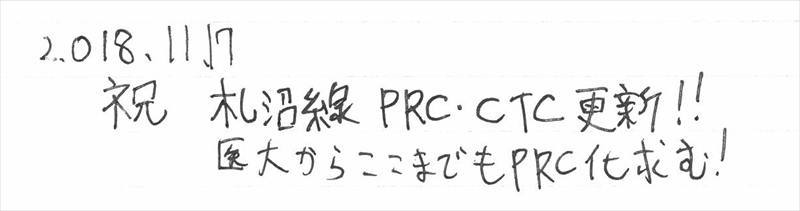 2.018.11.17
祝 札沼線 PRC・CTC更新!!
医大からここまでもPRC化求む!